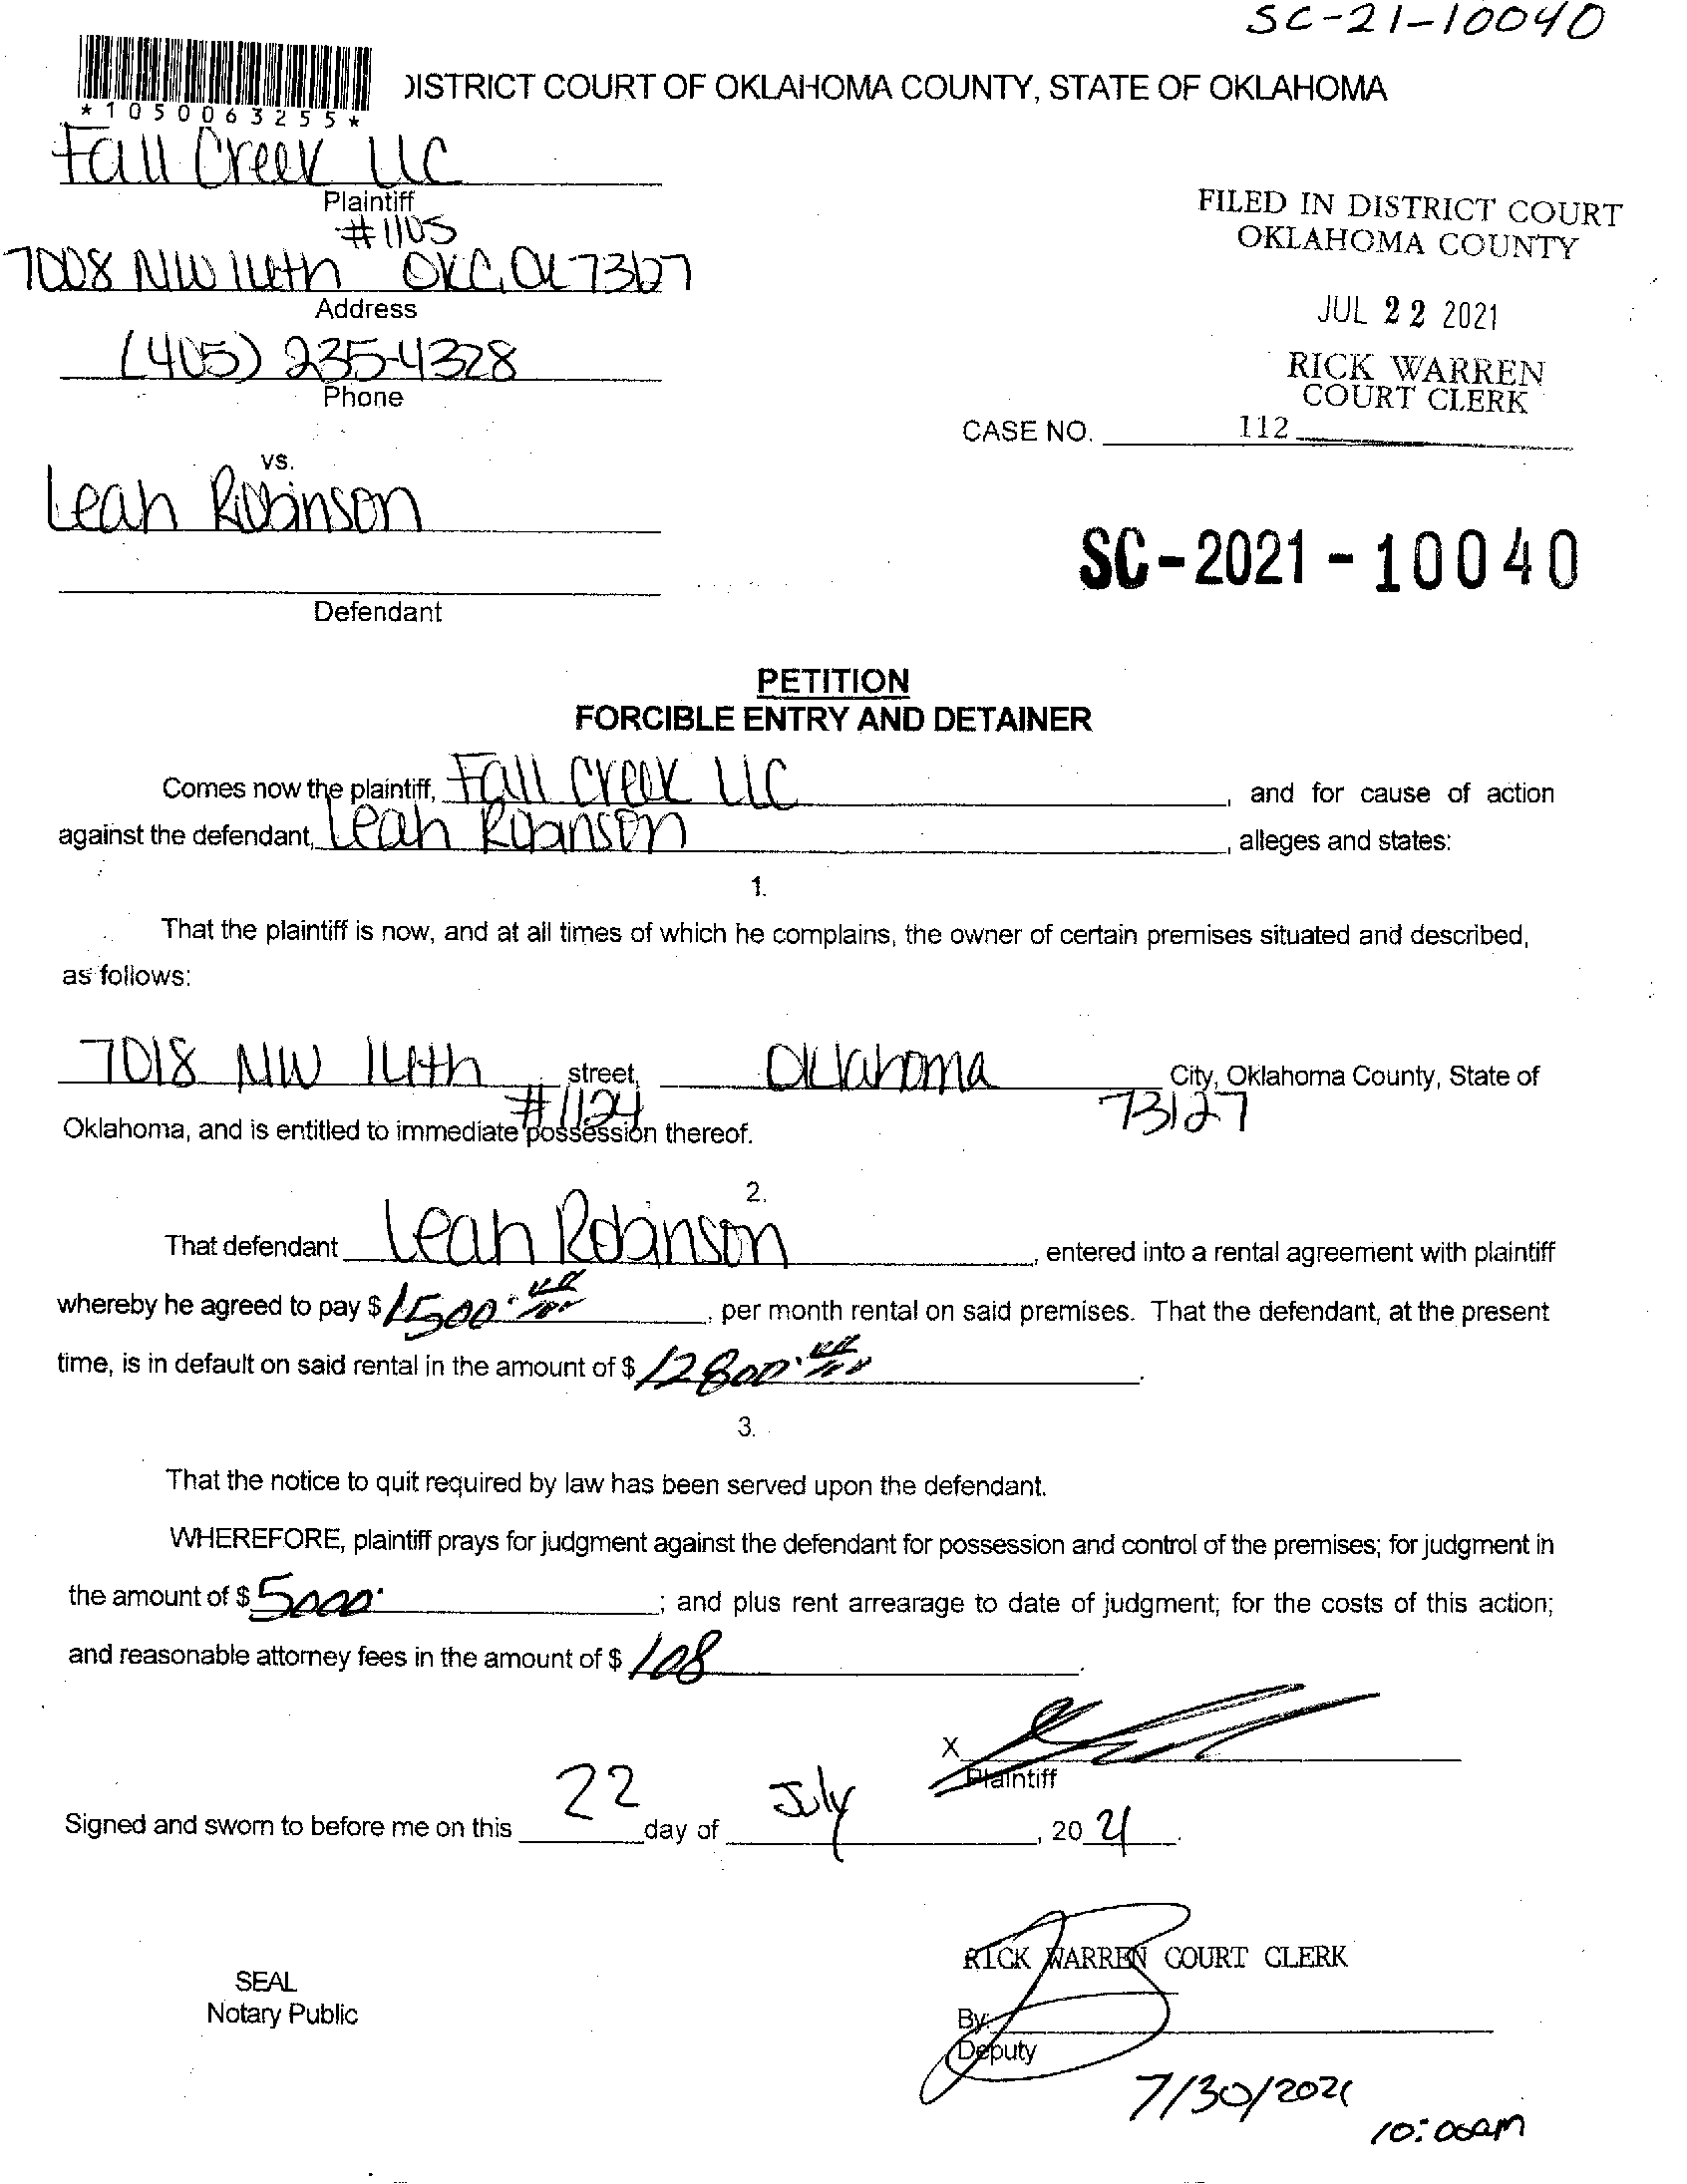 SC-21-10040
*1050063255*
DISTRICT COURT OF OKLAHOMA COUNTY, STATE OF OKLAHOMA
Fall Creek LLC
Plaintiff
#1105
7008 NW 16th OKC, OK 73127
Address
(405) 235-4328
Phone
FILED IN DISTRICT COURT
OKLAHOMA COUNTY
JUL 22 2021
RICK WARREN
COURT CLERK
CASE NO. 112
vs.
Leah Robinson
Defendant
SC-2021-10040
PETITION
FORCIBLE ENTRY AND DETAINER
Comes now the plaintiff, Fall Creek LLC, and for cause of action
against the defendant, Leah Robinson, alleges and states:
1.
That the plaintiff is now, and at all times of which he complains, the owner of certain premises situated and described,
as follows:
7018 NW 16th street, Oklahoma City, Oklahoma County, State of
#1124 73127
Oklahoma, and is entitled to immediate possession thereof.
2.
That defendant Leah Robinson, entered into a rental agreement with plaintiff
whereby he agreed to pay $ 1500., per month rental on said premises. That the defendant, at the present
time, is in default on said rental in the amount of $ 12800.
3.
That the notice to quit required by law has been served upon the defendant.
WHEREFORE, plaintiff prays for judgment against the defendant for possession and control of the premises; for judgment in
the amount of $ 5000.; and plus rent arrearage to date of judgment; for the costs of this action;
and reasonable attorney fees in the amount of $ 108.
X
Plaintiff
Signed and sworn to before me on this 22 day of July, 2021.
RICK WARREN COURT CLERK
SEAL
Notary Public
By:
Deputy
7/30/2021
10:00am